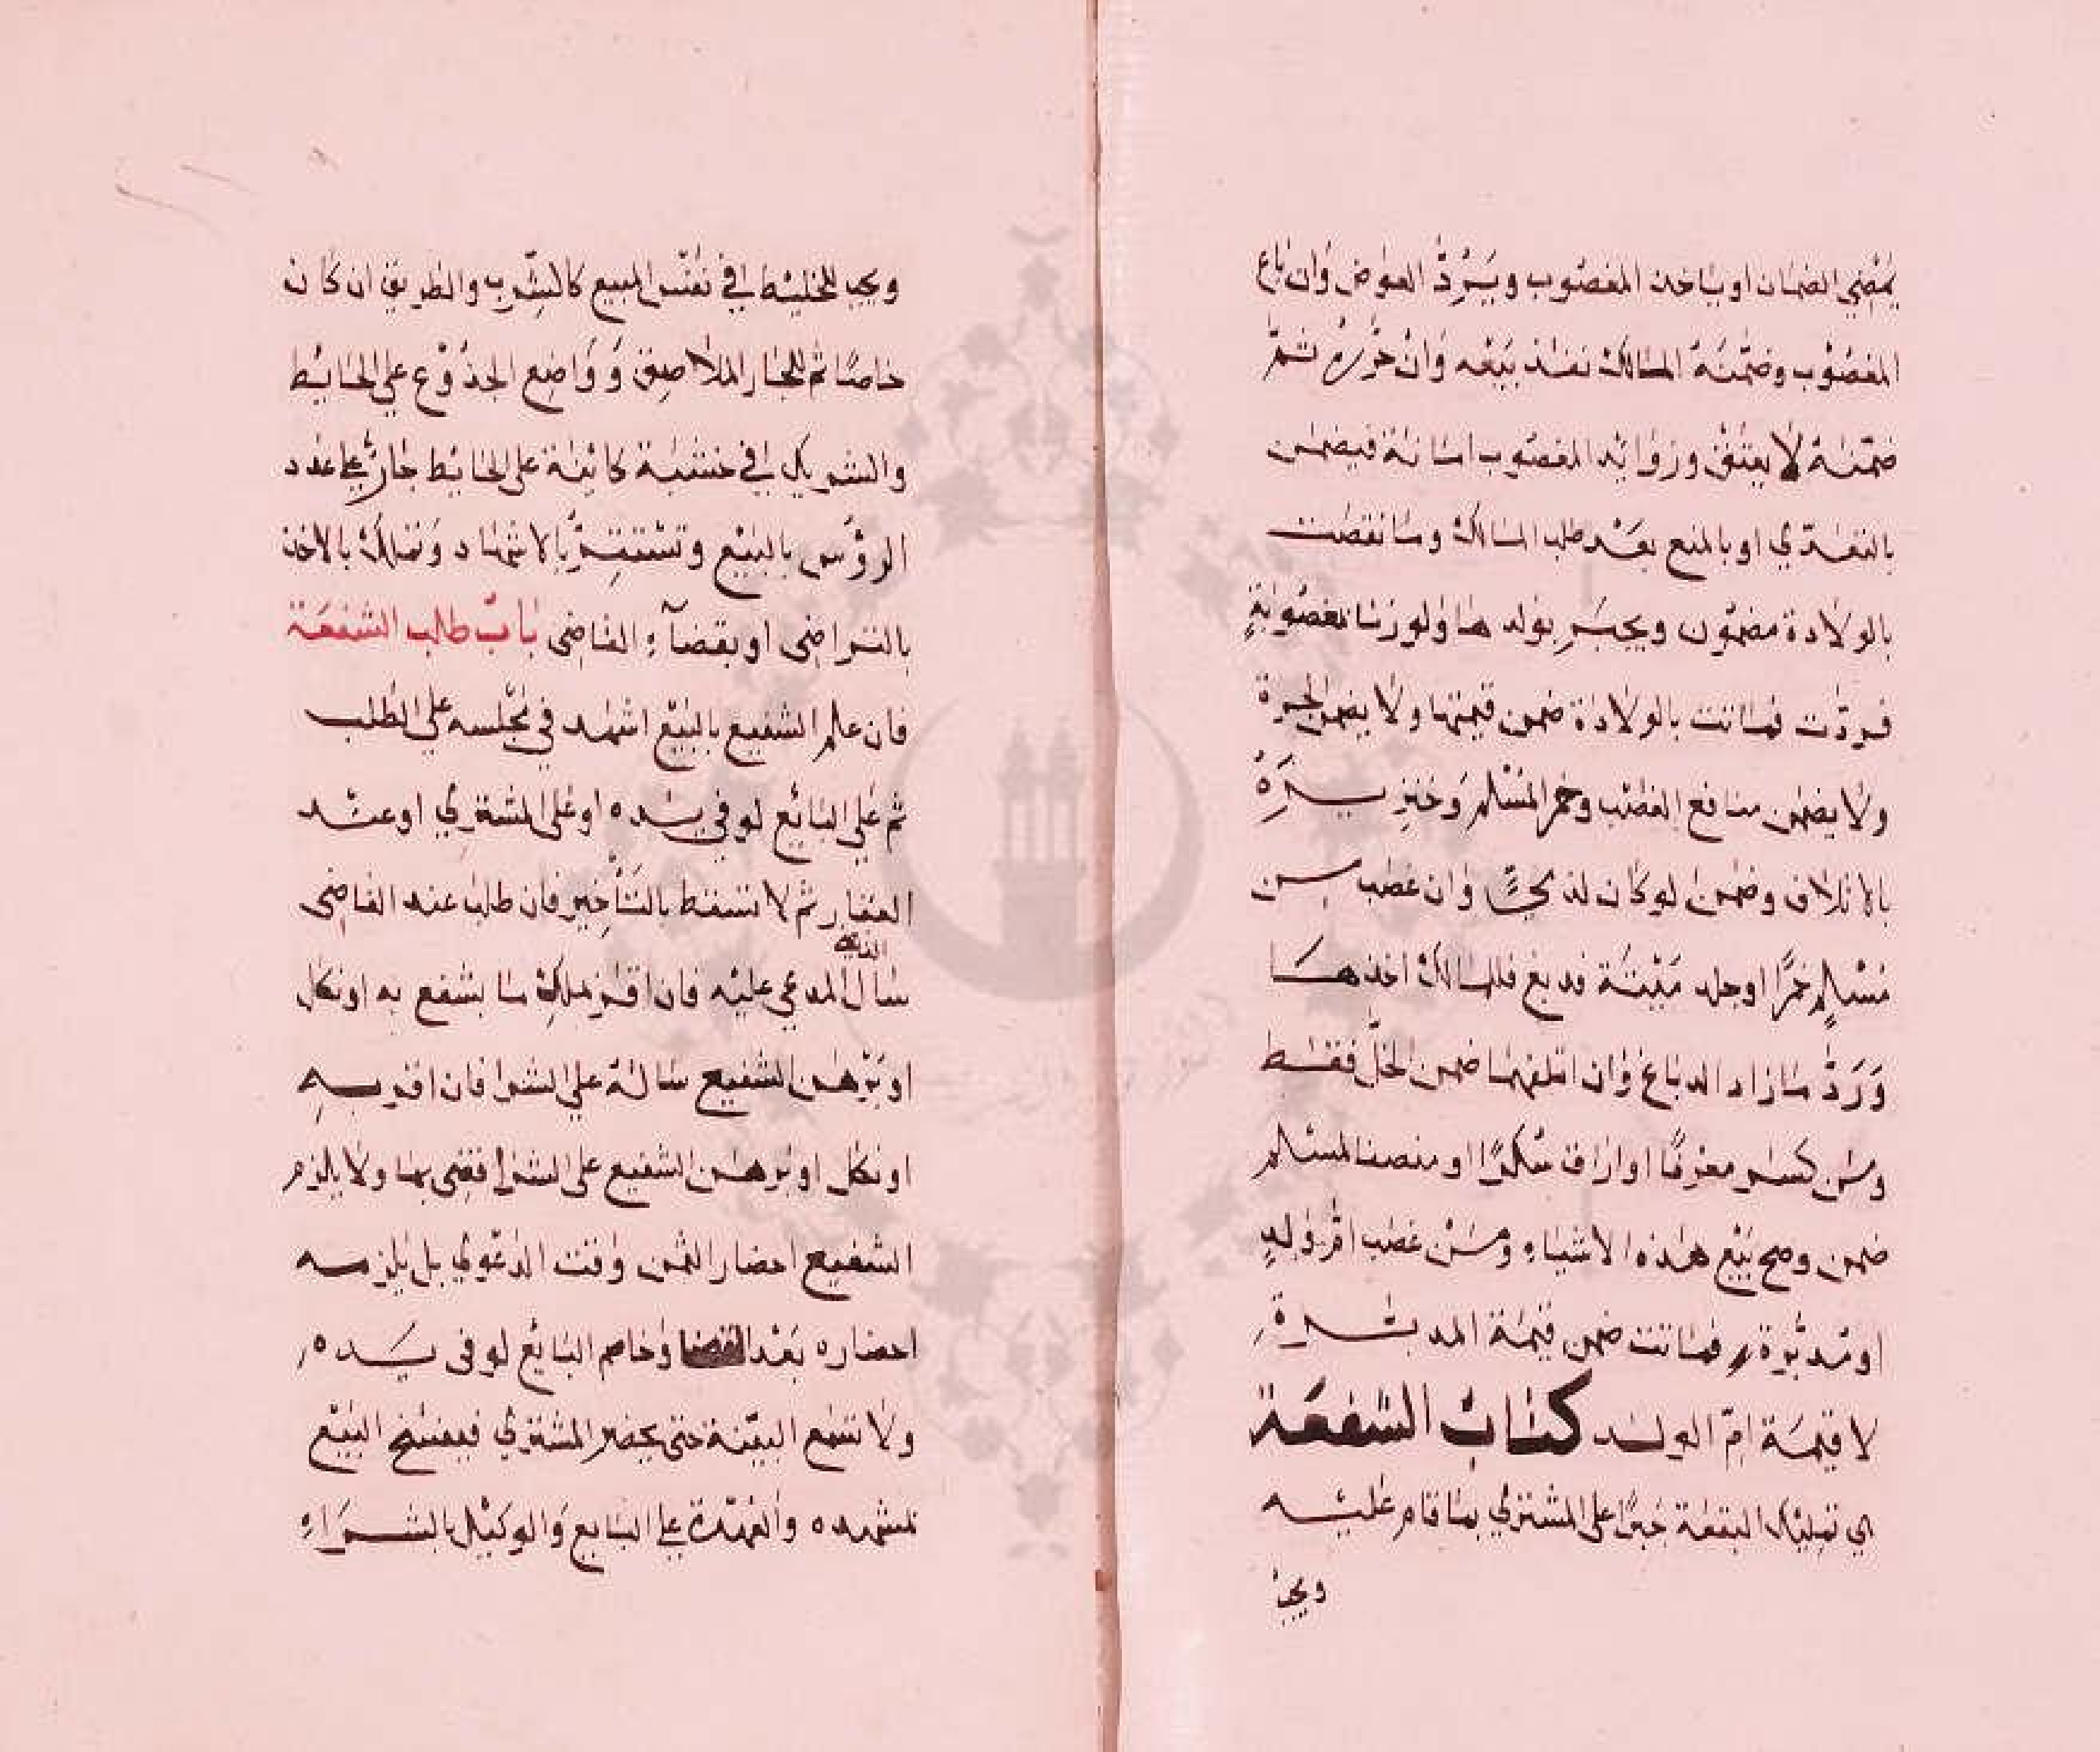 يمضي الضمان او ياخذ المغصوب ويَرُدّ العوض وان باع
المغصوب وضمّنَهُ المالك نفذ بيعه وَانْ حرّره ثمّ
ضمّنه لا يعتق وزوائد المغصوب امانة فيضمن
بالتعدّي او بالمنع بعد طلب المالك وما نقصت
بالولادة مضمون ويجبر بولدها ولو زنا بمغصوبةٍ
فردّت فماتت بالولادة ضمن قيمتها ولا يضمن الحرة
ولا يضمن منافع الغصب وخمر المسْلم وَخنزيره
بالاتلاف وضمن لو كان لذمي وان غصب من
مسْلم خمرًا او جلد مَيْتة فدبغ فللمالك اخذهما
وَرَدّ مازاد الدباغ وان اتلفهما ضمن الخلّ فقط
ومن كسر معزفًا او اراق سكرًا او منصفا لمسلم
ضمن وصح بَيْع هذه الاشياء ومن غصب امّ ولدٍ
او مُدبّرة فماتت ضمن قيمة المدبرة
لا قيمة امّ الولد كتاب الشفعَة
هي تمليك البقعة جبرًا على المشتري بما قام عليه
ويجب
ويجب للخليط في نفس المبيع كالشِرب والطريق ان كان
خاصًا ثم للجار الملاصق وَوَاضع الجذُوْع على الحائط
والشريك في خشبة كائنة على الحائط جار على عدد
الروُس بالبَيْع وتَسْتقِرّ بالاشهاد وَتملك بالاخذ
بالتراضي او بقضآء القاضي بابُ طلب الشفعَة
فان علم الشفيع بالبيع اشهد في مجلسه على الطلب
ثم على البائع لو في يده او على المشتري او عند
العقار ثم لا تسقط بالتَأخير فان طلب عند القاضي
سال المدعي عليه فان اقر بملك ما يشفع به او نكل
او بَرْهن الشفيع ساله على الشرا فان اقر به
او نكل او برهن الشفيع على الشرا قضى بها ولا يلزم
الشفيع احضار الثمن وقت الدعْوي بل يلزمه
احضاره بَعْد القضا وخاصم البائع لو في يَده
ولا تسمع البيّنة حتى يحضر المشتري فيفسخ البَيْع
بمشهده والعهْدة على البايع وَالوكيْل بالشراءِ